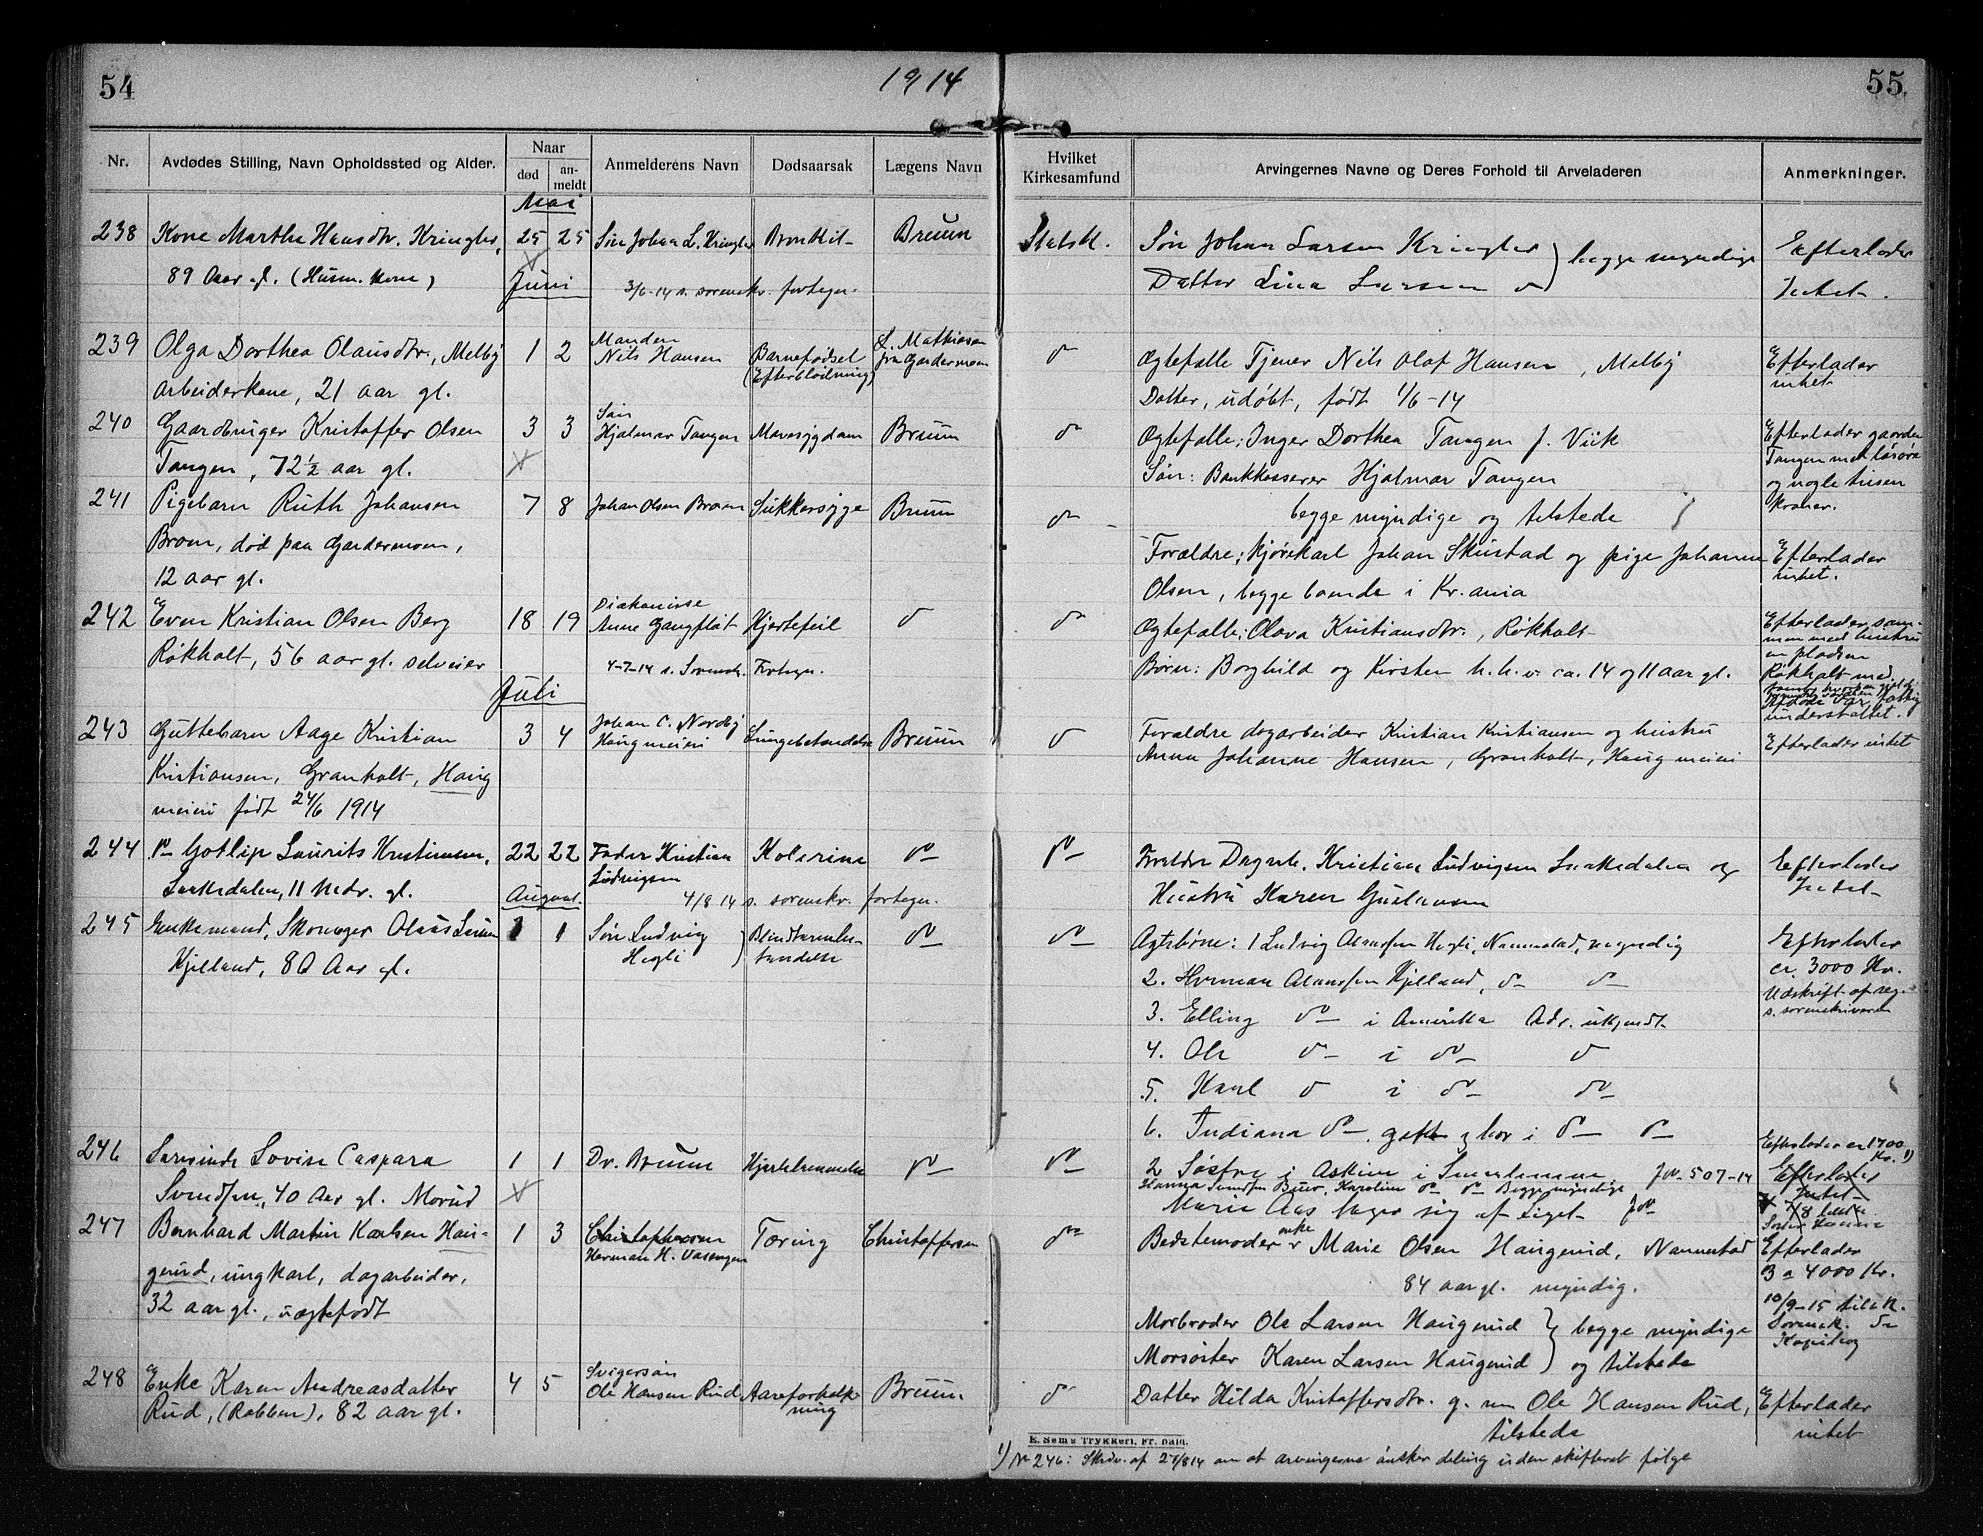 54
1914
55.
Nr.
Avdødes Stilling, Navn Opholdssted og Alder.
Naar
død
an-
meldt
Anmelderens Navn
Dødsaarsak
Lægens Navn
Hvilket
Kirkesamfund
Arvingernes Navne og Deres Forhold til Arveladeren
Anmerkninger.
Mai
238 Kone Martha Hansdtr. Kringler, 25 25 Søn Johan L. Kringler Bronkit Bruun Statsk. Søn Johan Larsen Kringler } begge myndige Efterlader
89 Aar gl. (Husm. kone) Datter Lina Larsen Intet.
Juni 3/6-14 s. sorenskr. fortegn.
239 Olga Dorthea Olausdtr., Melby 1 2 Manden Nils Hansen Barnefødsel (Efterblødning) L. Mathiesen fra Gardermoen do Ægtefælle Tjener Nils Olaf Hansen, Melby Efterlader
arbeiderkone, 21 aar gl. Datter, udøbt, født 1/6-14 intet
240 Gaardbruger Kristoffer Olsen 3 3 Søn Hjalmar Tangen Mavesygdom Bruun do Ægtefælle; Inger Dorthea Tangen f. Viik Efterlader gaarden
Tangen, 72½ aar gl. Søn: Bankkasserer Hjalmar Tangen Tangen med løsøre
begge myndige og tilstede og nogle tusen
kroner.
241 Pigebarn Ruth Johansen 7 8 Johan Olsen Brøm Sukkersyge Bruun do
Brøm, død paa Gardermoen, Forældre; kjørekarl Johan Skustad og pige Johanne Efterlader
12 aar gl. Olsen, begge boende i Kr.ania intet.
242 Even Kristian Olsen Berg 18 19 Diakonisse Anne Gangfløt Hjertefeil do do Ægtefælle; Olava Kristiansdtr., Røkholt Efterlader sam-
men med hustru
Røkholt, 56 aar gl. selveier 4-7-14 s. Sorenskr. Fortegn. Børn: Borghild og Kirsten h.h.v. ca. 14 og 11 aar gl. en pladsen
Røkholt med
understøttet.
Juli
243 Guttebarn Aage Kristian 3 4 Johan C. Nordby Haugmeieri Lungebetændelse Bruun do Forældre dagarbeider Kristian Kristiansen og hustru Efterlader intet
Kristiansen, Granholt, Haug Anna Johanne Hansen, Granholt, Haugmeieri
meieri født 24/6 1914
244 do Gotlip Laurits Kristiansen, 22 22 Fader Kristian Ludvigsen Kolerine do do Forældre Dagarb. Kristian Ludvigsen Laakedalen og Efterlader
Laakedalen, 11 Mdr. gl. Hustru Karen Gustavsen Intet
August 4/8 14 s. sorenskr. fortegn.
245 Enkemand, Skomager Olaus Larsen 1 1 Søn Ludvig Hegli Blindtarmbe-
tændelse do do Ægtebørn: 1 Ludvig Olaussen Hegli, Nannestad, myndig Efterlader
Kjelland, 80 Aar gl. 2. Herman Olaussen Kjelland, do do ca. 3000 Kr.
3. Elling do i Amerika Adr. ukjendt Udskrift af reg.
s. sorenskriveren
4. Ole do i do do
5. Karl do i do do
6. Indiana do gift og bor i do do
246 Lovise Caspara 1 1 Dr. Bruun Hjertelammelse do do 2 Søstre i Askim i Smaalenene J№ 507-14 Efterlader ca 1700 Kr. 1)
Svendsen, 40 Aar gl. Morud Hanna Svendsen Buer, Karoline do do Begge myndige Efterlader Intet
Marie Aas tager sig af Liget J№
247 Bernhard Martin Karlsen Hau- 1 3 Christoffersen Herman H. Vasengen Tæring Christoffersen do Bedstemoder enke Marie Olsen Haugerud, Nannestad Efterlader
gerud, ungkarl, dagarbeider, 84 aar gl. myndig. 3 a 4000 Kr.
32 aar gl., uægtefødt Morbroder Ole Larsen Haugerud } begge myndige 10/9-15 til
Morsøster Karen Larsen Haugerud } og tilstede Sorensk.
248 Enke Karen Andreasdatter 4 5 Svigersøn Ole Hansen Rud Aareforkalk-
ning Bruun. do Datter Hilda Kristoffersdtr. g. m Ole Hansen Rud, Efterlader
Rud, (Robben), 82 aar gl. tilstede intet
E. Sems Trykkeri, Fr. hald.
1) № 246: Skriv. af 27/8 14 om at arvingerne ønsker deling uden skifteret følge